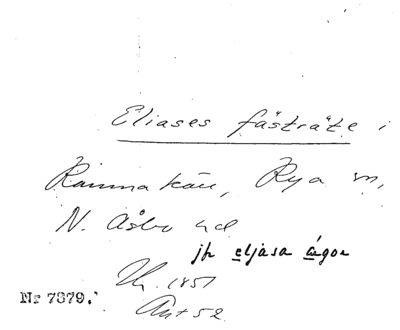 Eliases fästräte i
Ramnakärr, Rya sn,
N. Åsbo hd
jfr eljasa ägor
1851
Nr 7879.
Ant 52